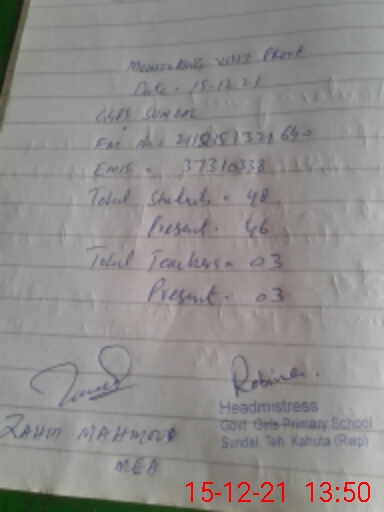 Monitoring Visit Proof
Date - 15-12-21
GGPS SUNDAL
EMIS = 37310338
Total Students = 48
Present = 46
Total Teachers = 03
Present = 03
Robina.
Headmistress
Govt Girls Primary School
Sundal Teh Kahuta (Rwp)
ZAHID MAHMOOD
MEA
15-12-21 13:50